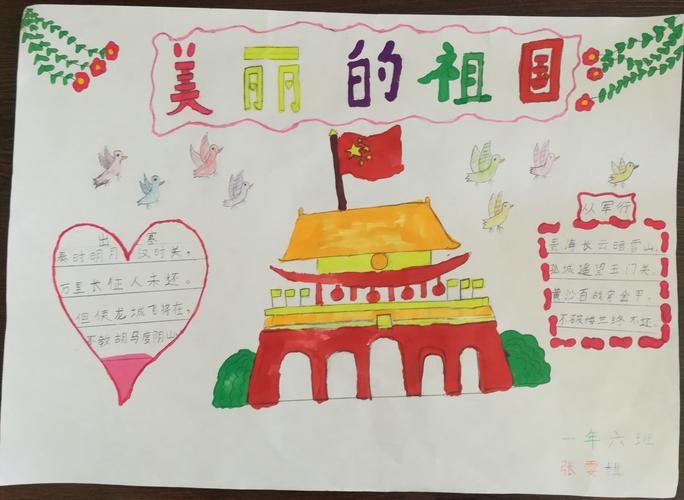 美丽的祖国
出塞
秦时明月汉时关，
万里长征人未还。
但使龙城飞将在，
不教胡马度阴山
从军行
青海长云暗雪山，
孤城遥望玉门关。
黄沙百战穿金甲，
不破楼兰终不还。
一年六班
张雯